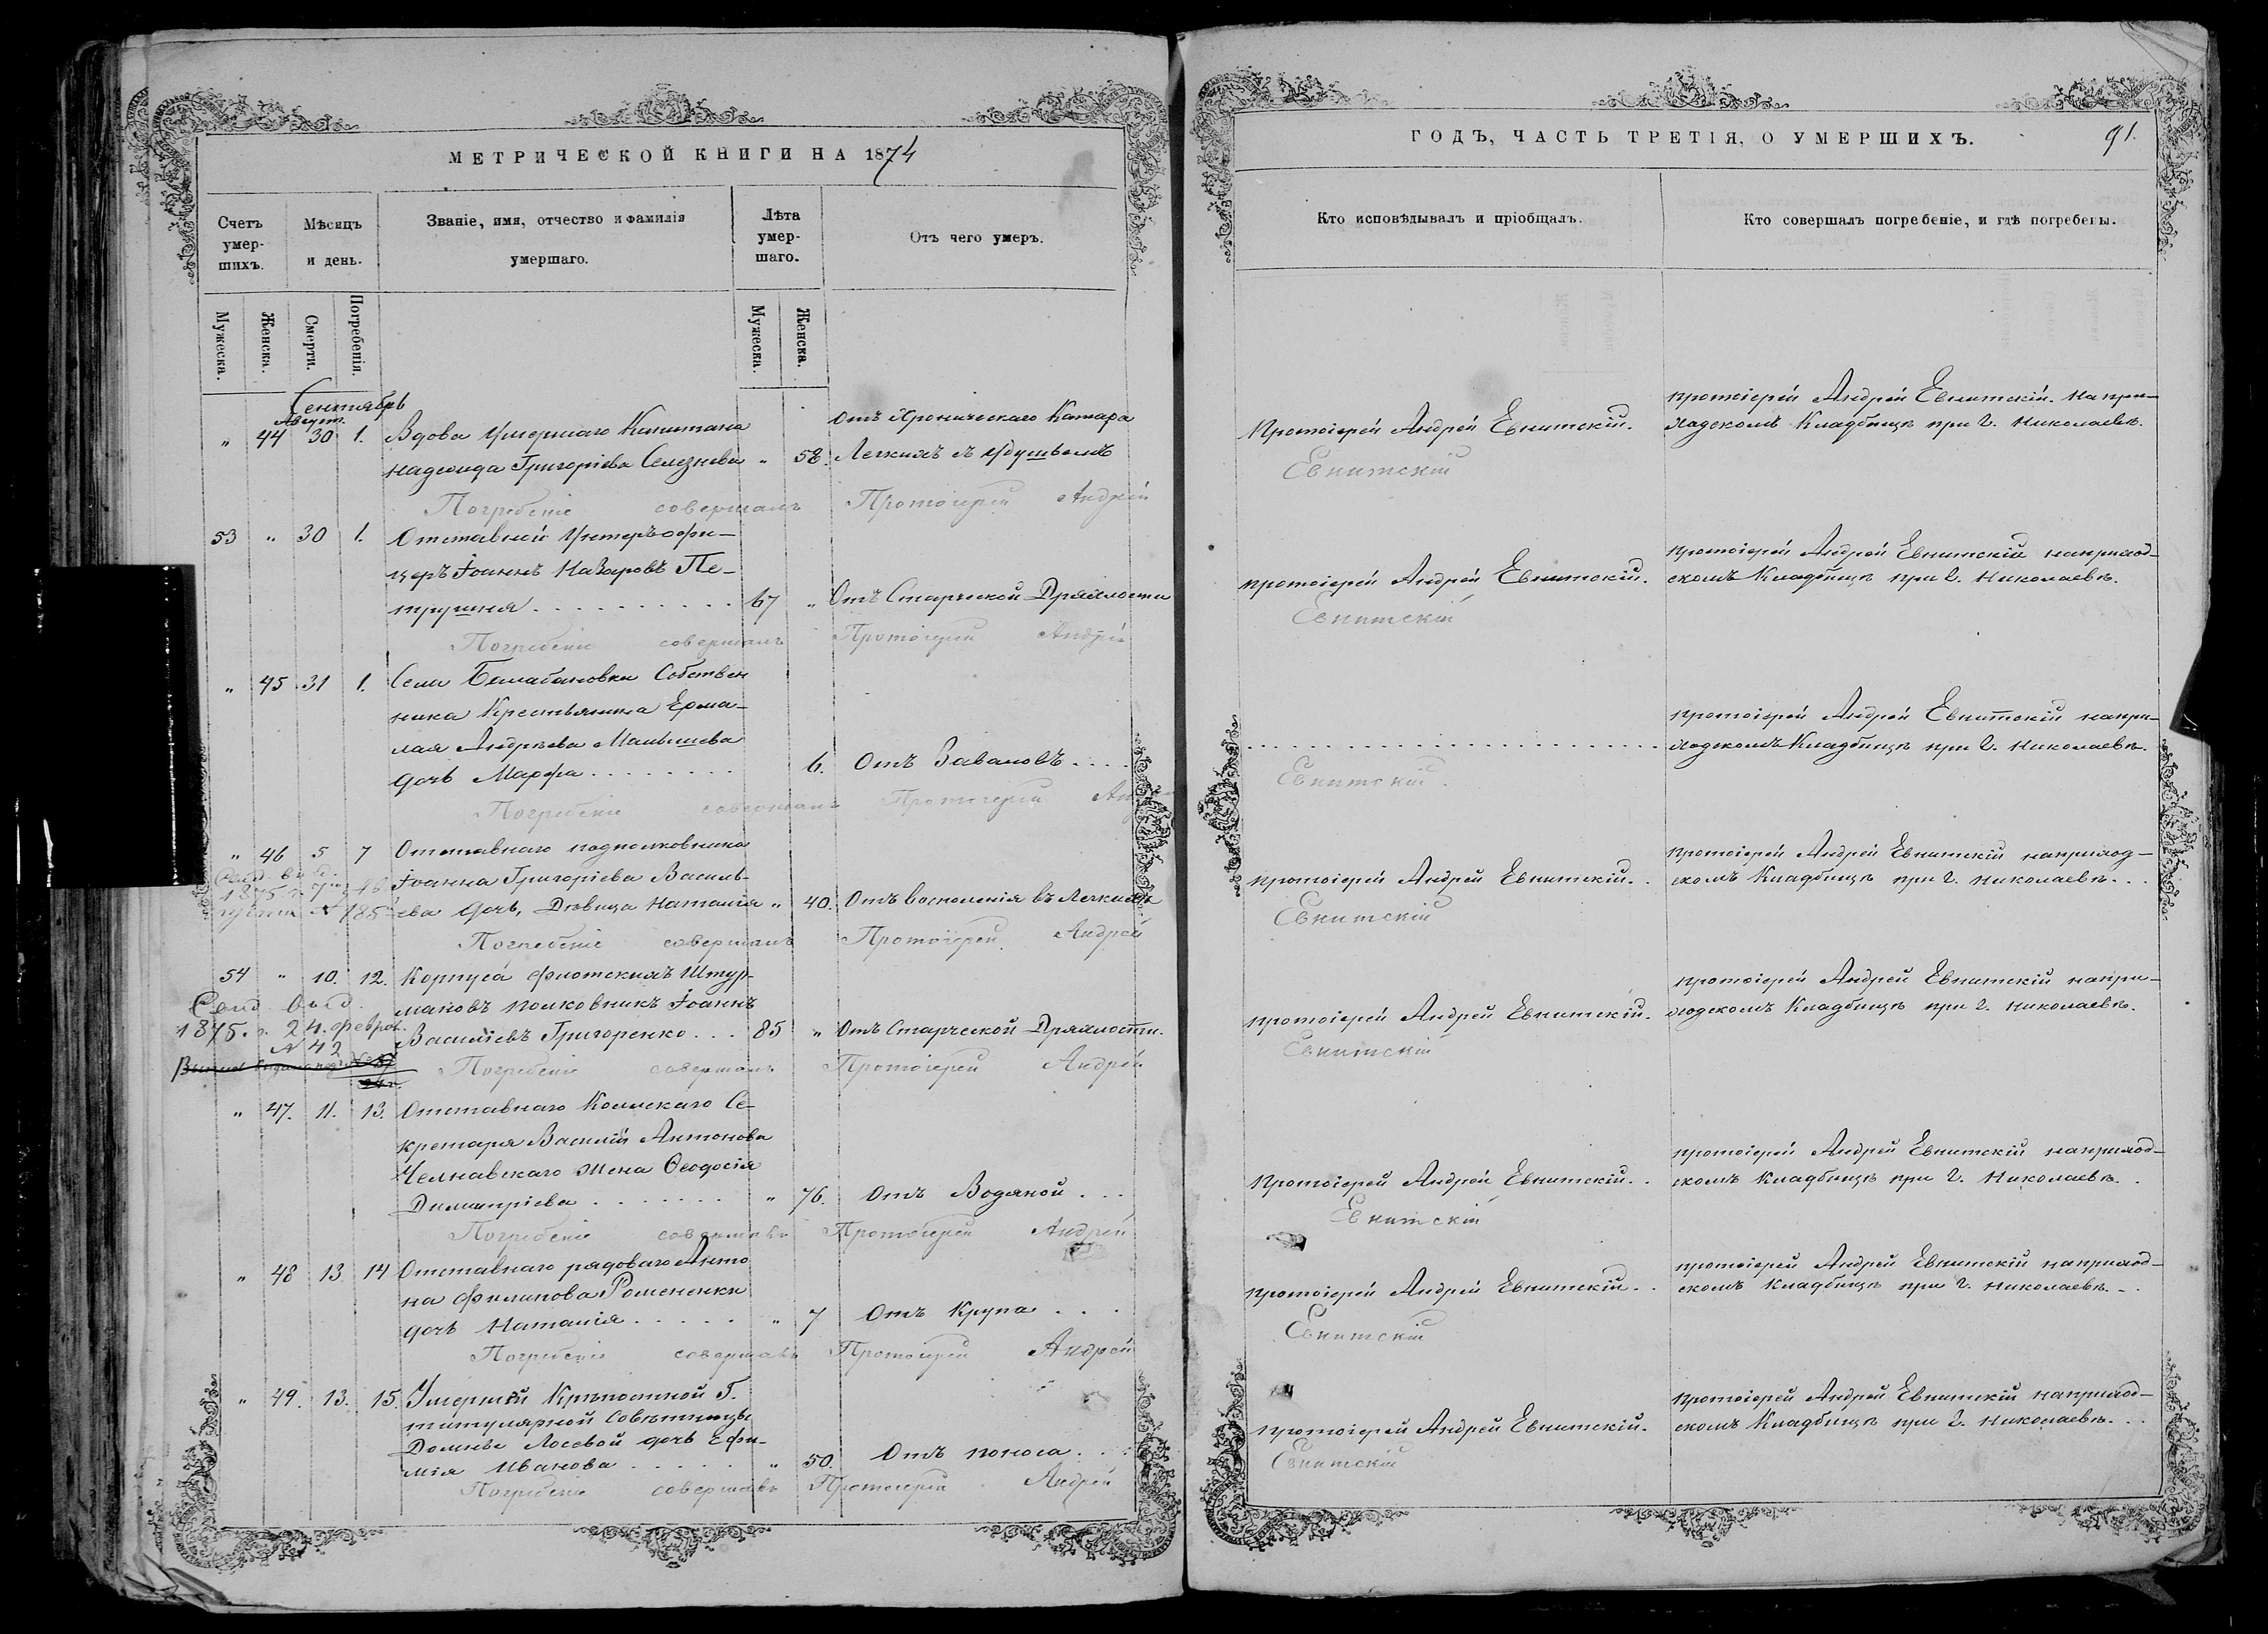 МЕТРИЧЕСКОЙ КНИГИ НА 1874
Счетъ умер-шихъ.
Мѣсяцъ и день.
Званіе, имя, отчество и фамилія умершаго.
Лѣта умер-шаго.
Отъ чего умеръ.
Мужеска.
Женска.
Смерти.
Погребенія.
Мужеска.
Женска.
Сентябрь
Август.
" 44 30 1. Вдова Умершаго Капитана
Надежда Григоріева Селезнева " 58.
Отъ Хроническаго Катара
Легкихъ съ Удушьемъ
Погребеніе совершалъ Протоіерей Андрей
53 " 30 1. Отставной Унтеръ офи-
церъ Іоаннъ Назаровъ Пе-
трушня . . . . . . . . . . . 67 " Отъ Старческой Дряхлости
Погребеніе совершалъ Протоіерей Андрей
" 45 31 1. Села Балабановки Собствен
ника Крестьянина Ермо-
лая Андрѣева Малышева
дочь Марфа . . . . . . . . 6. Отъ Заваловъ . . . .
Погребеніе совершалъ Протоіерей Андрей
" 46 5 7 Отставнаго подполковника
Іоанна Григоріева Василь-
ева дочь, Дѣвица Наталія " 40. Отъ воспаленія въ Легкихъ
1875 г.
№ 185
Погребеніе совершалъ Протоіерей Андрей
54 " 10. 12. Корпуса флотскихъ Штур-
мановъ полковникъ Іоаннъ
Василіевъ Григоренко . . . 85 " Отъ Старческой Дряхлости.
Свид. выд.
1875. г. 24. феврал.
№ 42
Погребеніе совершалъ Протоіерей Андрей
" 47. 11. 13. Отставнаго Коллежскаго Се-
кретаря Василія Антонова
Челнавскаго жена Ѳеодосія
Димитріева . . . . . . . " 76. Отъ Водяной . . .
Погребеніе совершалъ Протоіерей Андрей
" 48 13 14 Отставнаго рядоваго Анто
на Филипова Роменски
дочь Наталія . . . . . " 7 Отъ Крупа . . .
Погребеніе совершалъ Протоіерей Андрей
" 49. 13. 15. Умершей Крѣпостной Г.
титулярной Совѣтницы
Домны Лосевой дочь Ефи-
мія Иванова . . . . . " 50. Отъ поноса . . .
Погребеніе совершалъ Протоіерей Андрей
ГОДЪ, ЧАСТЬ ТРЕТІЯ, О УМЕРШИХЪ.
91.
Кто исповѣдывалъ и пріобщалъ.
Кто совершалъ погребеніе, и гдѣ погребены.
Протоіерей Андрей Евнитскій.
протоіерей Андрей Евнитскій. на при-
ходскомъ Кладбищѣ при г. Николаевѣ.
Евнитскій
протоіерей Андрей Евнитскій.
протоіерей Андрей Евнитскій на приход-
скомъ Кладбищѣ при г. Николаевѣ.
Евнитскій
протоіерей Андрей Евнитскій на при-
ходскомъ Кладбищѣ при г. Николаевѣ.
Евнитскій.
протоіерей Андрей Евнитскій. .
протоіерей Андрей Евнитскій на приход-
скомъ Кладбищѣ при г. Николаевѣ. . .
Евнитскій
протоіерей Андрей Евнитскій.
протоіерей Андрей Евнитскій на при-
ходскомъ Кладбищѣ при г. Николаевѣ.
Евнитскій
протоіерей Андрей Евнитскій. .
протоіерей Андрей Евнитскій на приход-
скомъ Кладбищѣ при г. Николаевѣ. .
Евнитскій
протоіерей Андрей Евнитскій. .
протоіерей Андрей Евнитскій на приход-
скомъ Кладбищѣ при г. Николаевѣ. . .
Евнитскій
протоіерей Андрей Евнитскій.
протоіерей Андрей Евнитскій на приход-
скомъ Кладбищѣ при г. Николаевѣ. . .
Евнитскій